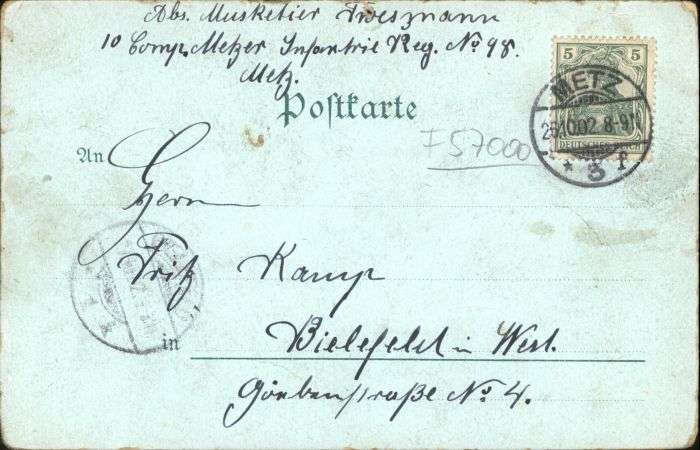 Abs. Musketier Driesmann
10 Comp. Metzer Infantrie Reg. No 98.
Metz.
Postkarte
5 5
DEUTSCHES REICH
METZ
26.10.02 8-9V
* 3 f
F 57000
An
Herrn
Fritz Kamp
in Bielefeld in West.
Göbenstraße No 4.